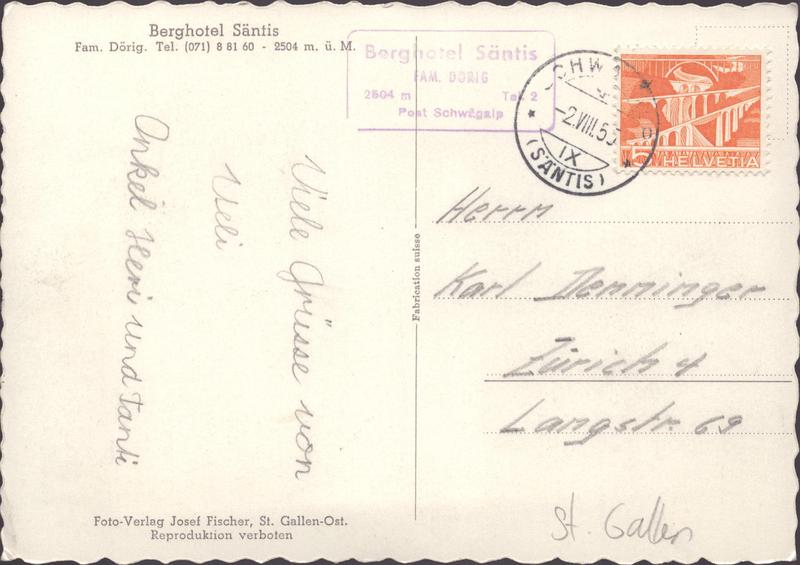 Berghotel Säntis
Fam. Dörig. Tel. (071) 8 81 60 - 2504 m. ü. M.
Berghotel Säntis
FAM. DÖRIG
2504 m Tel. 2
Post Schwägalp
-2.VIII.5
IX
(SÄNTIS)
5 HELVETIA
Viele Grüsse von
Ueli
Onkel Heri und Tanti
Fabrication suisse
Herrn
Karl Denninger
Zürich 4
Langstr. 69
St. Gallen
Foto-Verlag Josef Fischer, St. Gallen-Ost.
Reproduktion verboten